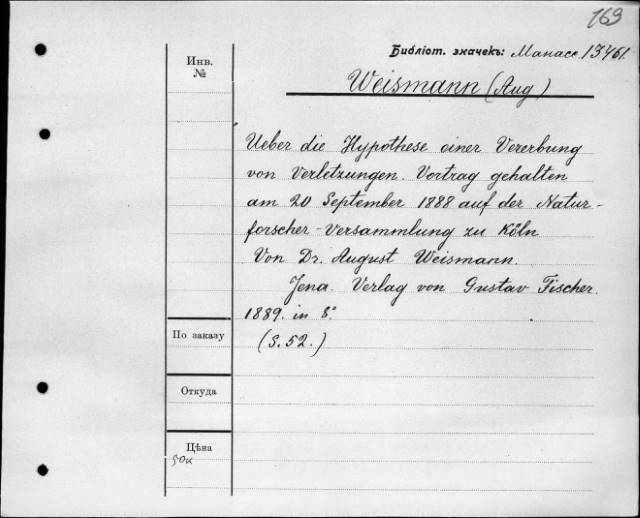 169
Библіот. значекъ: Манасс. 13461.
Инв.
№
Weismann (Aug)
Ueber die Hypothese einer Vererbung
von Verletzungen. Vortrag gehalten
am 20 September 1888 auf der Natur-
forscher-Versammlung zu Köln
Von Dr. August Weismann.
Jena. Verlag von Gustav Fischer.
1889. in 8°.
(S. 52.)
По заказу
Откуда
Цѣна
50к